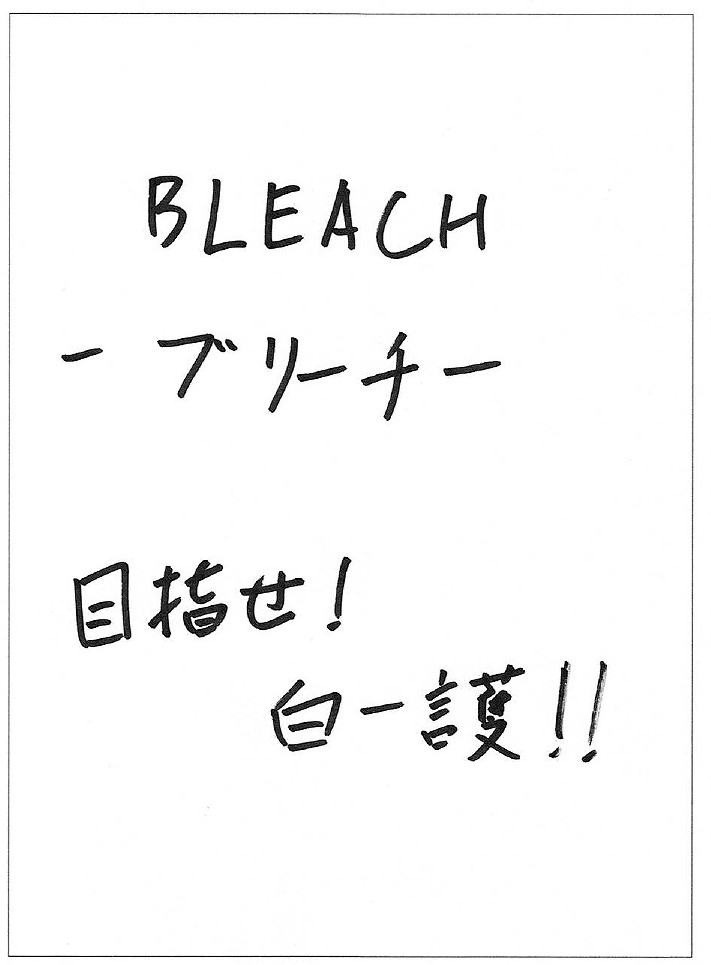 BLEACH
－ブリーチ－
目指せ!
白一護!!